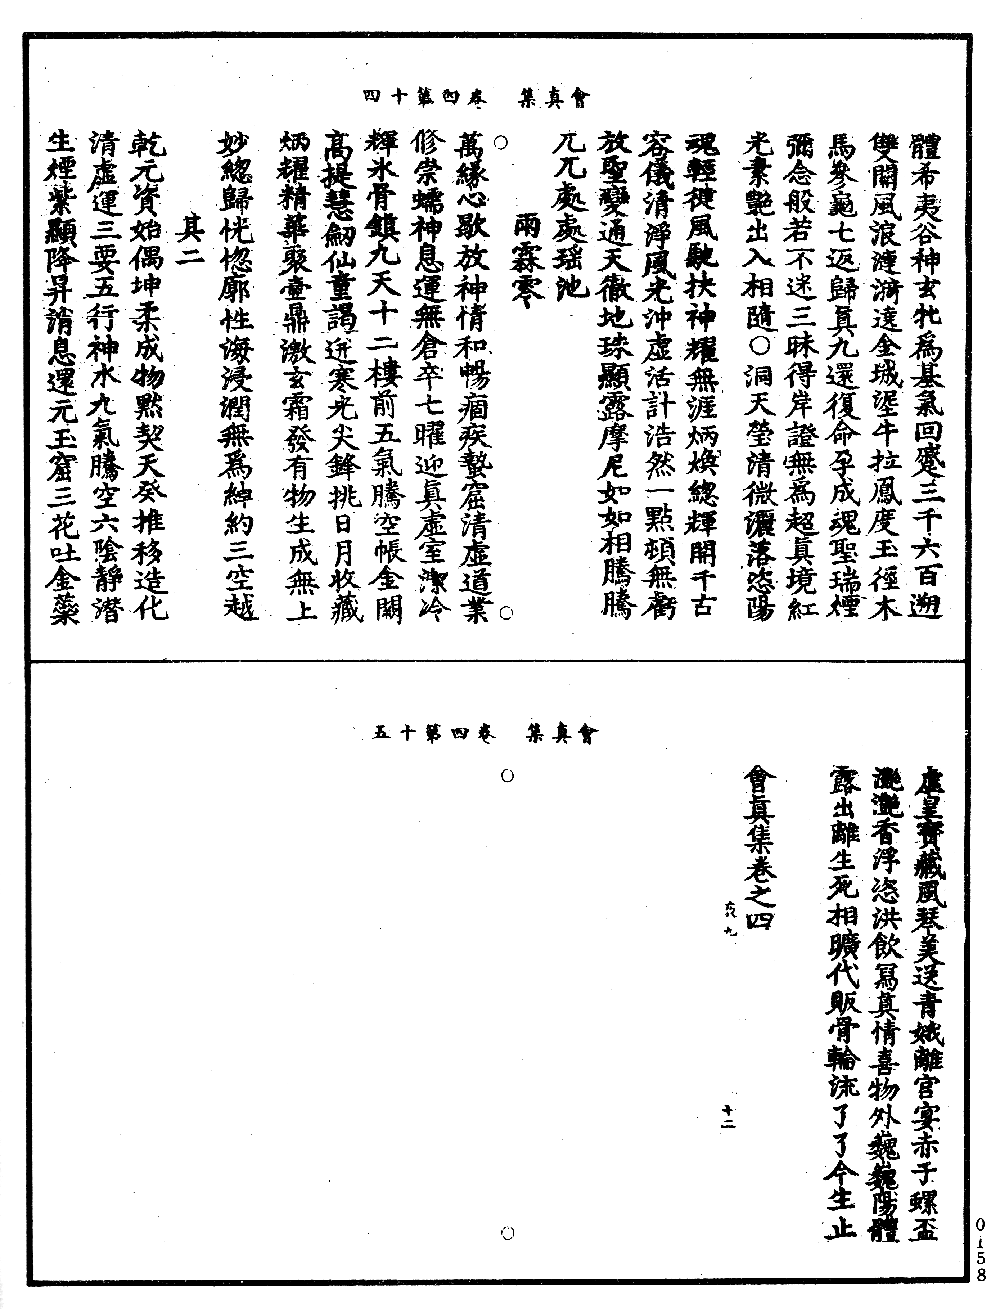 會真集　卷四第十四
體希夷谷神玄牝爲基氣回蹙三千六百遡
雙關風浪漣漪遶金城渥牛拉鳳度玉徑木
馬參龜七返歸真九還復命孕成魂聖瑞煙
彌念般若不迷三昧得岸證無爲超真境紅
光素艷出入相隨○洞天瑩清微灑落恣陽
魂輕徤風馳扶神耀無涯炳煥總輝開千古
容儀清淨風光沖虛活計浩然一點頓無虧
放聖變通天徹地珠顯露摩尼如如相騰騰
兀兀處處瑤池
雨霖零
萬緣心歇放神情和暢痼疾蟄窟清虛道業
修崇蠕神息運無倉卒七曜迎真虛室潔冷
輝氷骨鎮九天十二樓前五氣騰空帳金闕
高提慧劒仙童謁迸寒光尖鋒挑日月收藏
炳耀精華裹壺鼎激玄霜發有物生成無上
妙總歸恍惚廓性海浸潤無爲綽約三空越
其二
乾元資始偶坤柔成物黙契天癸推移造化
清虛運三要五行神水九氣騰空六陰靜潛
生煙紫顯降昇消息還元玉窟三花吐金蘂
會真集　卷四第十五
虛皇寶藏風琴美送青娥離宮宴赤子螺盃
灔灔香浮恣洪飲冩真情喜物外巍巍陽體
露出離生死相曠代販骨輪流了了今生止
會真集卷之四
十二
0158